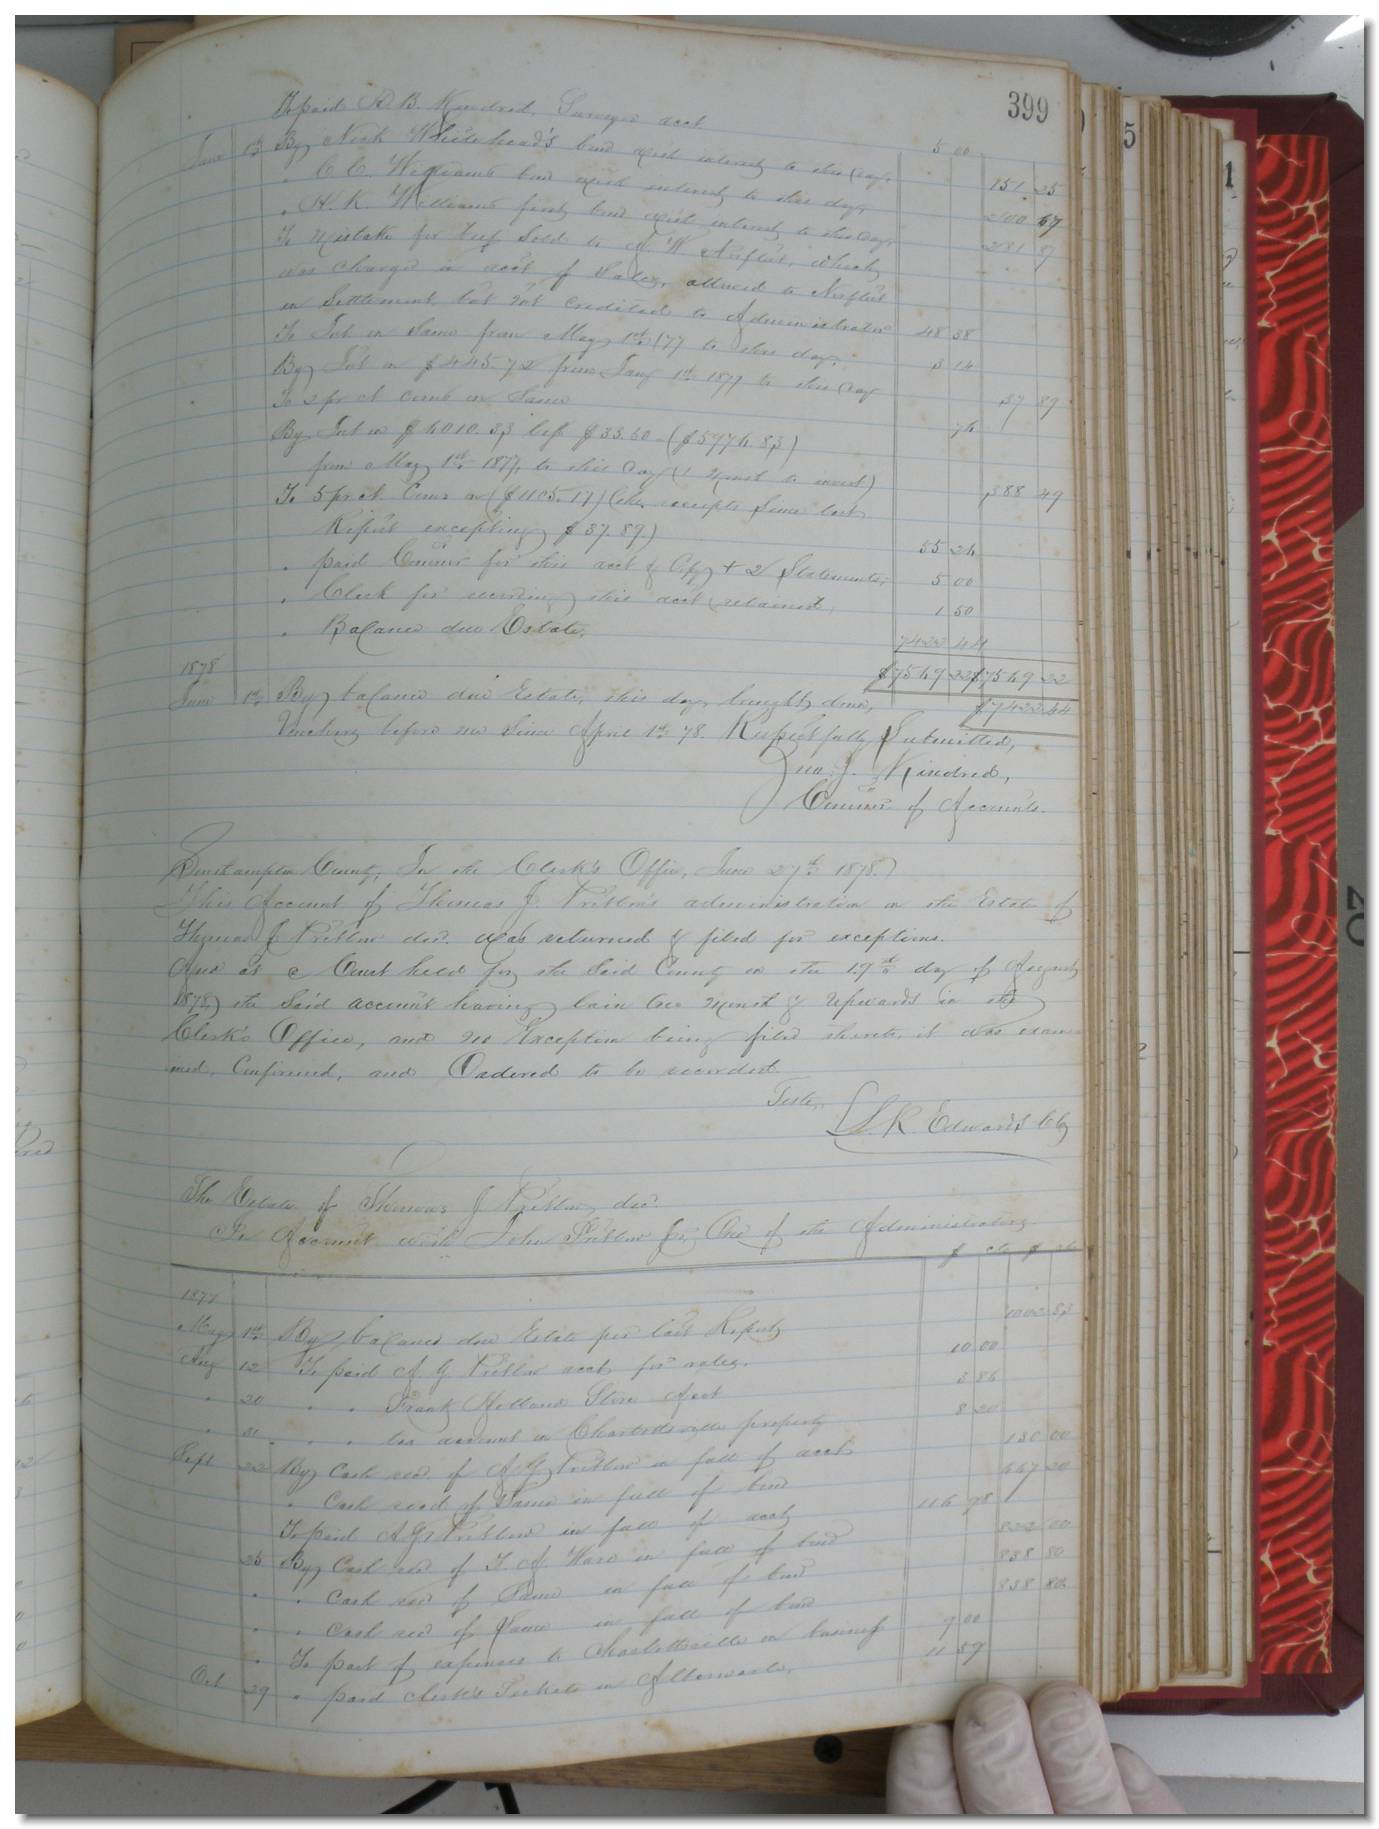 399
To paid A. B. Kindred, Surveyor acct. 5 00
June 1st By Nick Whitehead's bond with interest to this day, 151 25
" C. C. Williams bond with interest to this day, 67
" H. K. Williams first bond with interest to this day, 281 87
To Mistake for beef sold to J. W. which
was charged in acct of Sales, allowed to
in Settlement but not credited to Administrator 48 38
To Int on Same from May 1st 1877 to this day, 3 14
By Int on $445.72 from Jany 1st 1877 to this day 37 89
To 2 pr ct Coms on Same 76
By Int on $6010.33 less $33.50 ($5976.83)
from May 1st 1877, to this day (1 Month to invest) 388 49
To 5 pr. ct. Coms on ($1105.17) (the receipts since last
Report excepting $37.89.) 55 26
" paid Commr for this acct & Copy + 2 Statements, 5 00
" Clerk for recording this acct (retained) 1 50
" Balance due Estate, 7422 44
$7569 22 $7569 22
1878
June 1st By balance due Estate, this day brought down, $7422 44
Vouchers before me Since April 1st 78. Respectfully Submitted,
Jno. J. Kindred,
Commr of Accounts.
Southampton County, In the Clerk's Office, June 27th 1878.
This Account of Thomas J. Pretlow's administration on the Estate of
Thomas J. Pretlow dec. was returned & filed for exceptions.
And at a Court held for the Said County on the 19th day of August
1878, the Said account having lain One Month & Upwards in the
Clerk's Office, and no Exception being filed thereto, it was exam-
ined, Confirmed, and Ordered to be recorded
Teste,
L. R. Edwards Clk
The Estate of Thomas J. Pretlow, dec.
In Account with John Pretlow Jr, One of the Administrators
$ cts $ cts
1877
May 1st By balance due Estate per last Report
Aug 12 To paid A. G. Pretlow acct for 10 00
" 20 " " Frank Holland Store Acct 3 86
" 31 " " tax account on Charlottesville property 8 20
Sept 22 By Cash recd of A. G. Pretlow in full of acct 130 00
" Cash recd of Same in full of bond 667 20
To paid A. G. Pretlow in full of acct 116 98
25 By Cash recd of T. J. Ware in full of bond
" " Cash recd of Same in full of bond 838 80
" " Cash recd of Same in full of bond 838 80
" To part of expenses to Charlottesville on business 9 00
Oct 29 " paid Clerk's Tickets in Albemarle, 11 59